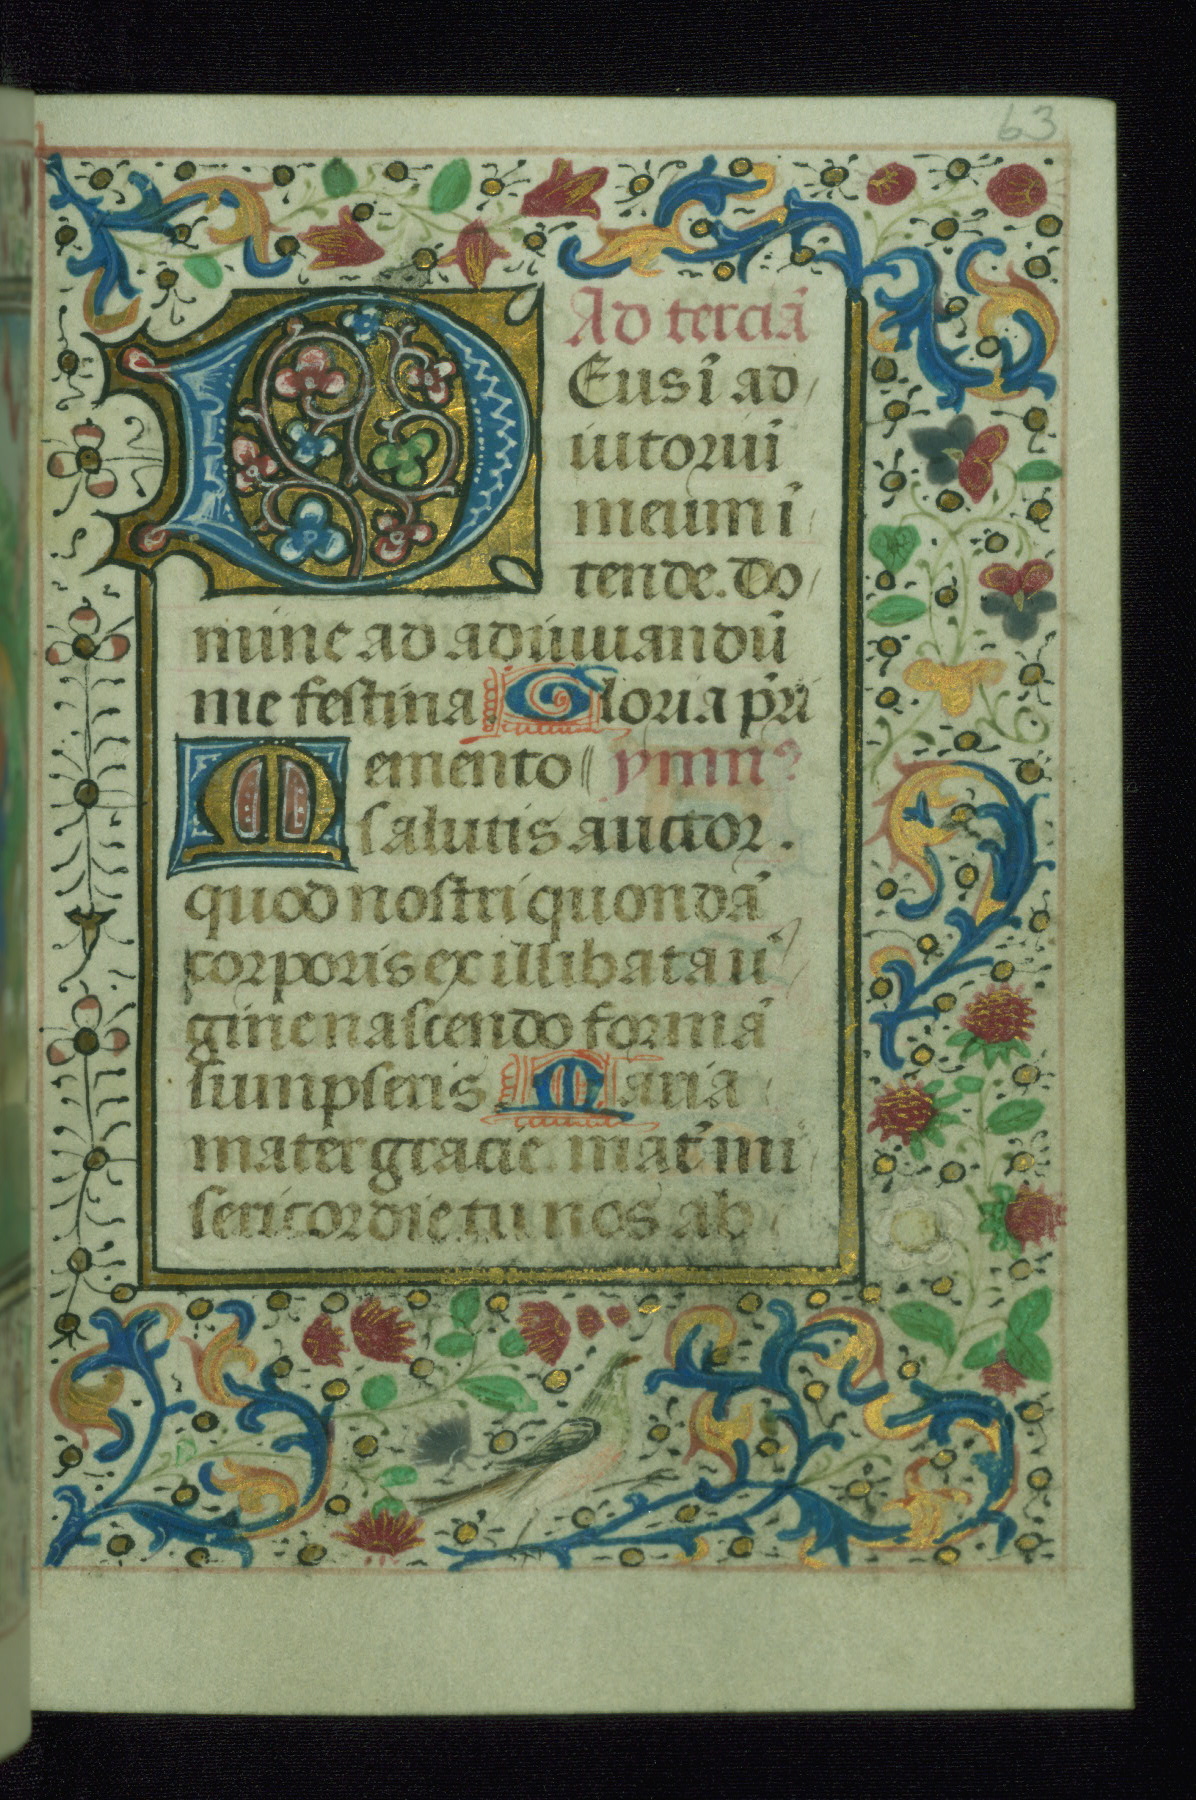 63
Ad terciā
Deus ī ad
iutoriū
meum ī
tende. do
mine ad adiuuandū
me festina. Gloria pr̄i
Memento ymnꝰ
salutis auctor.
quod nostri quondā
corporis ex illibata ui
gine nascendo formā
sumpseris Maria
mater gracie mat̄ mi
sericordie tu nos ab